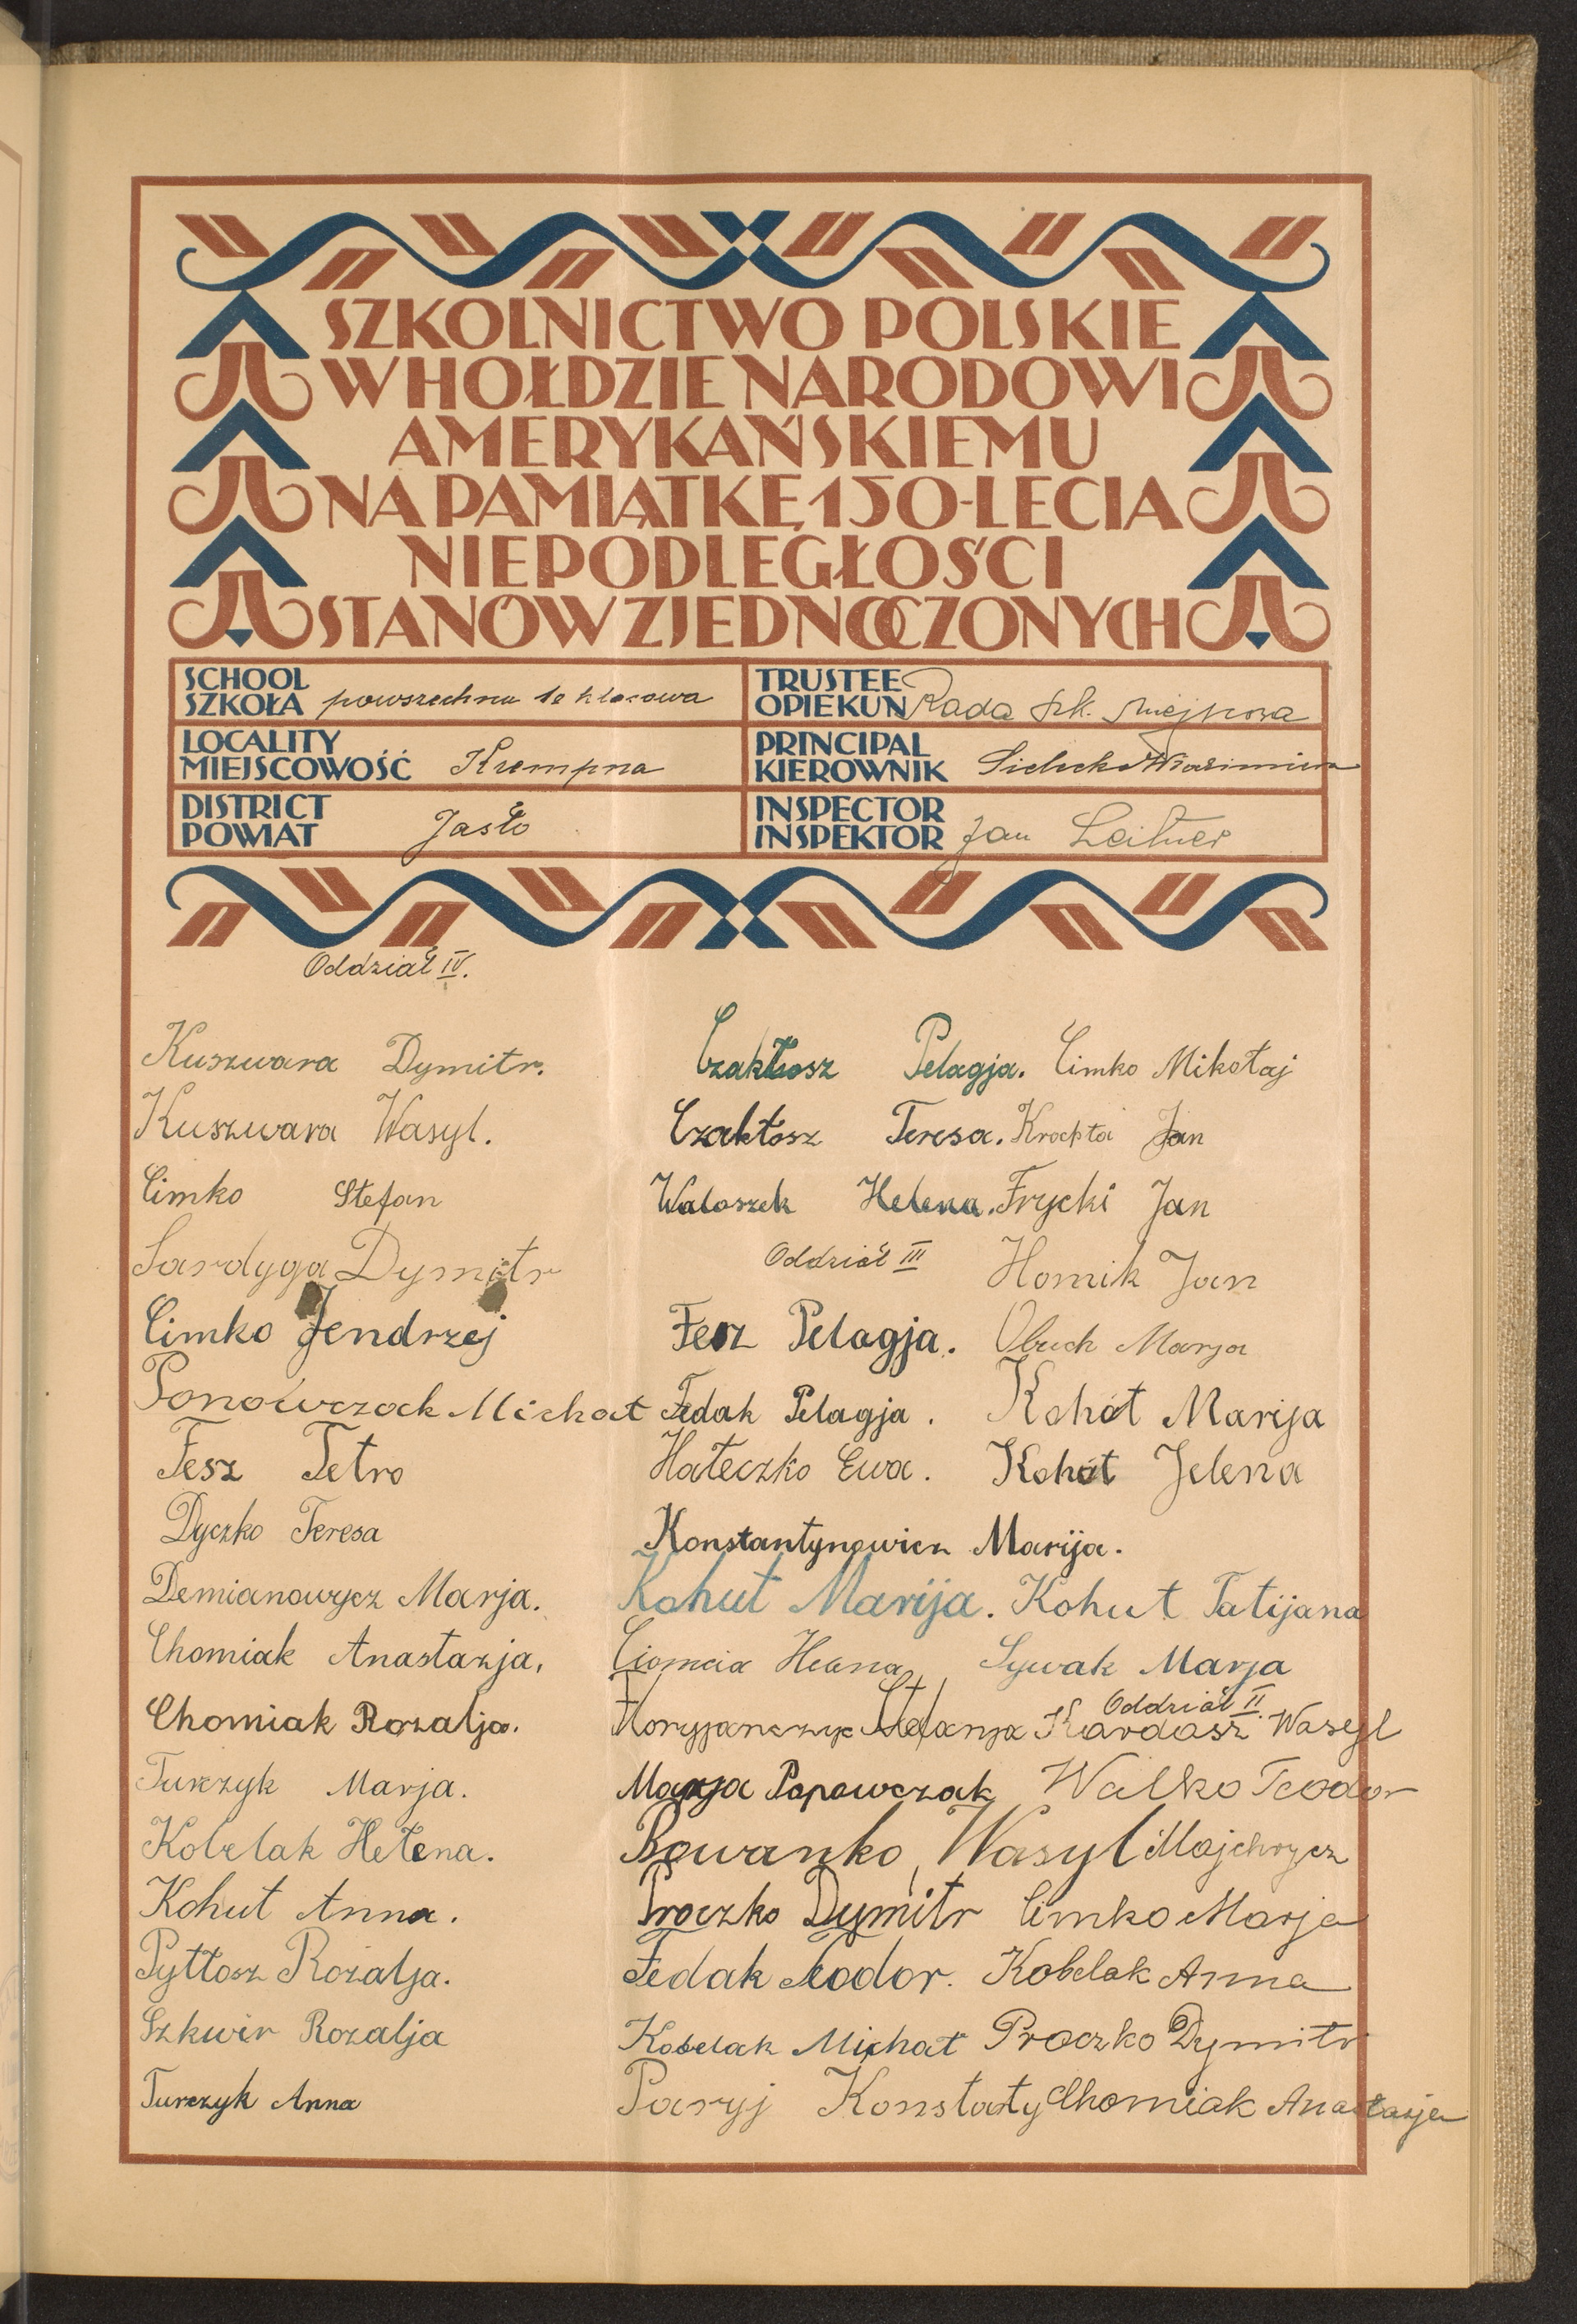 SZKOLNICTWO POLSKIE
W HOŁDZIE NARODOWI
AMERYKAŃSKIEMU
NA PAMIĄTKĘ 150-LECIA
NIEPODLEGŁOŚCI
STANÓW ZJEDNOCZONYCH
SCHOOL
SZKOŁA powszechna 1o klasowa
TRUSTEE
OPIEKUN Rada szk. miejscowa
LOCALITY
MIEJSCOWOŚĆ Krempna
PRINCIPAL
KIEROWNIK
DISTRICT
POWIAT Jasło
INSPECTOR
INSPEKTOR Jan Leitner
Oddział IV.
Kuszwara Dymitr.
Kuszwara Wasyl.
Cimko Stefan
Sardyga Dymitr
Cimko Jendrzej
Michał
Fesz Petro
Dyczko Teresa
Demianowycz Marja.
Chomiak Anastazja.
Chomiak Rozalja.
Turczyk Marja.
Kobelak Helena.
Kohut Anna.
Pyttosz Rozalja.
Szkwir Rozalja
Turczyk Anna
Czaktosz Pelagja. Cimko Mikołaj
Czaktosz Teresa. Krochta Jan
Waloszek Helena. Frycki Jan
Oddział III
Homik Jan
Fesz Pelagja. Obuch Marja
Fedak Pelagja. Kohót Marija
Hateczko Ewa. Kohót Jelena
Konstantynowicz Marija.
Kohut Marija. Kohut Tatijana
Sywak Marja
Oddział II.
Horyjanczyk Stefanja Kardasz Wasyl
Marja Popowczak Walko Teodor
Rowanko, Wasyl Majchrycz
Proczko Dymitr Cimko Marja
Fedak Teodor. Kobelak Anna
Kobelak Michał Proczko Dymitr
Paryj Konstaty Chomiak Anastazja